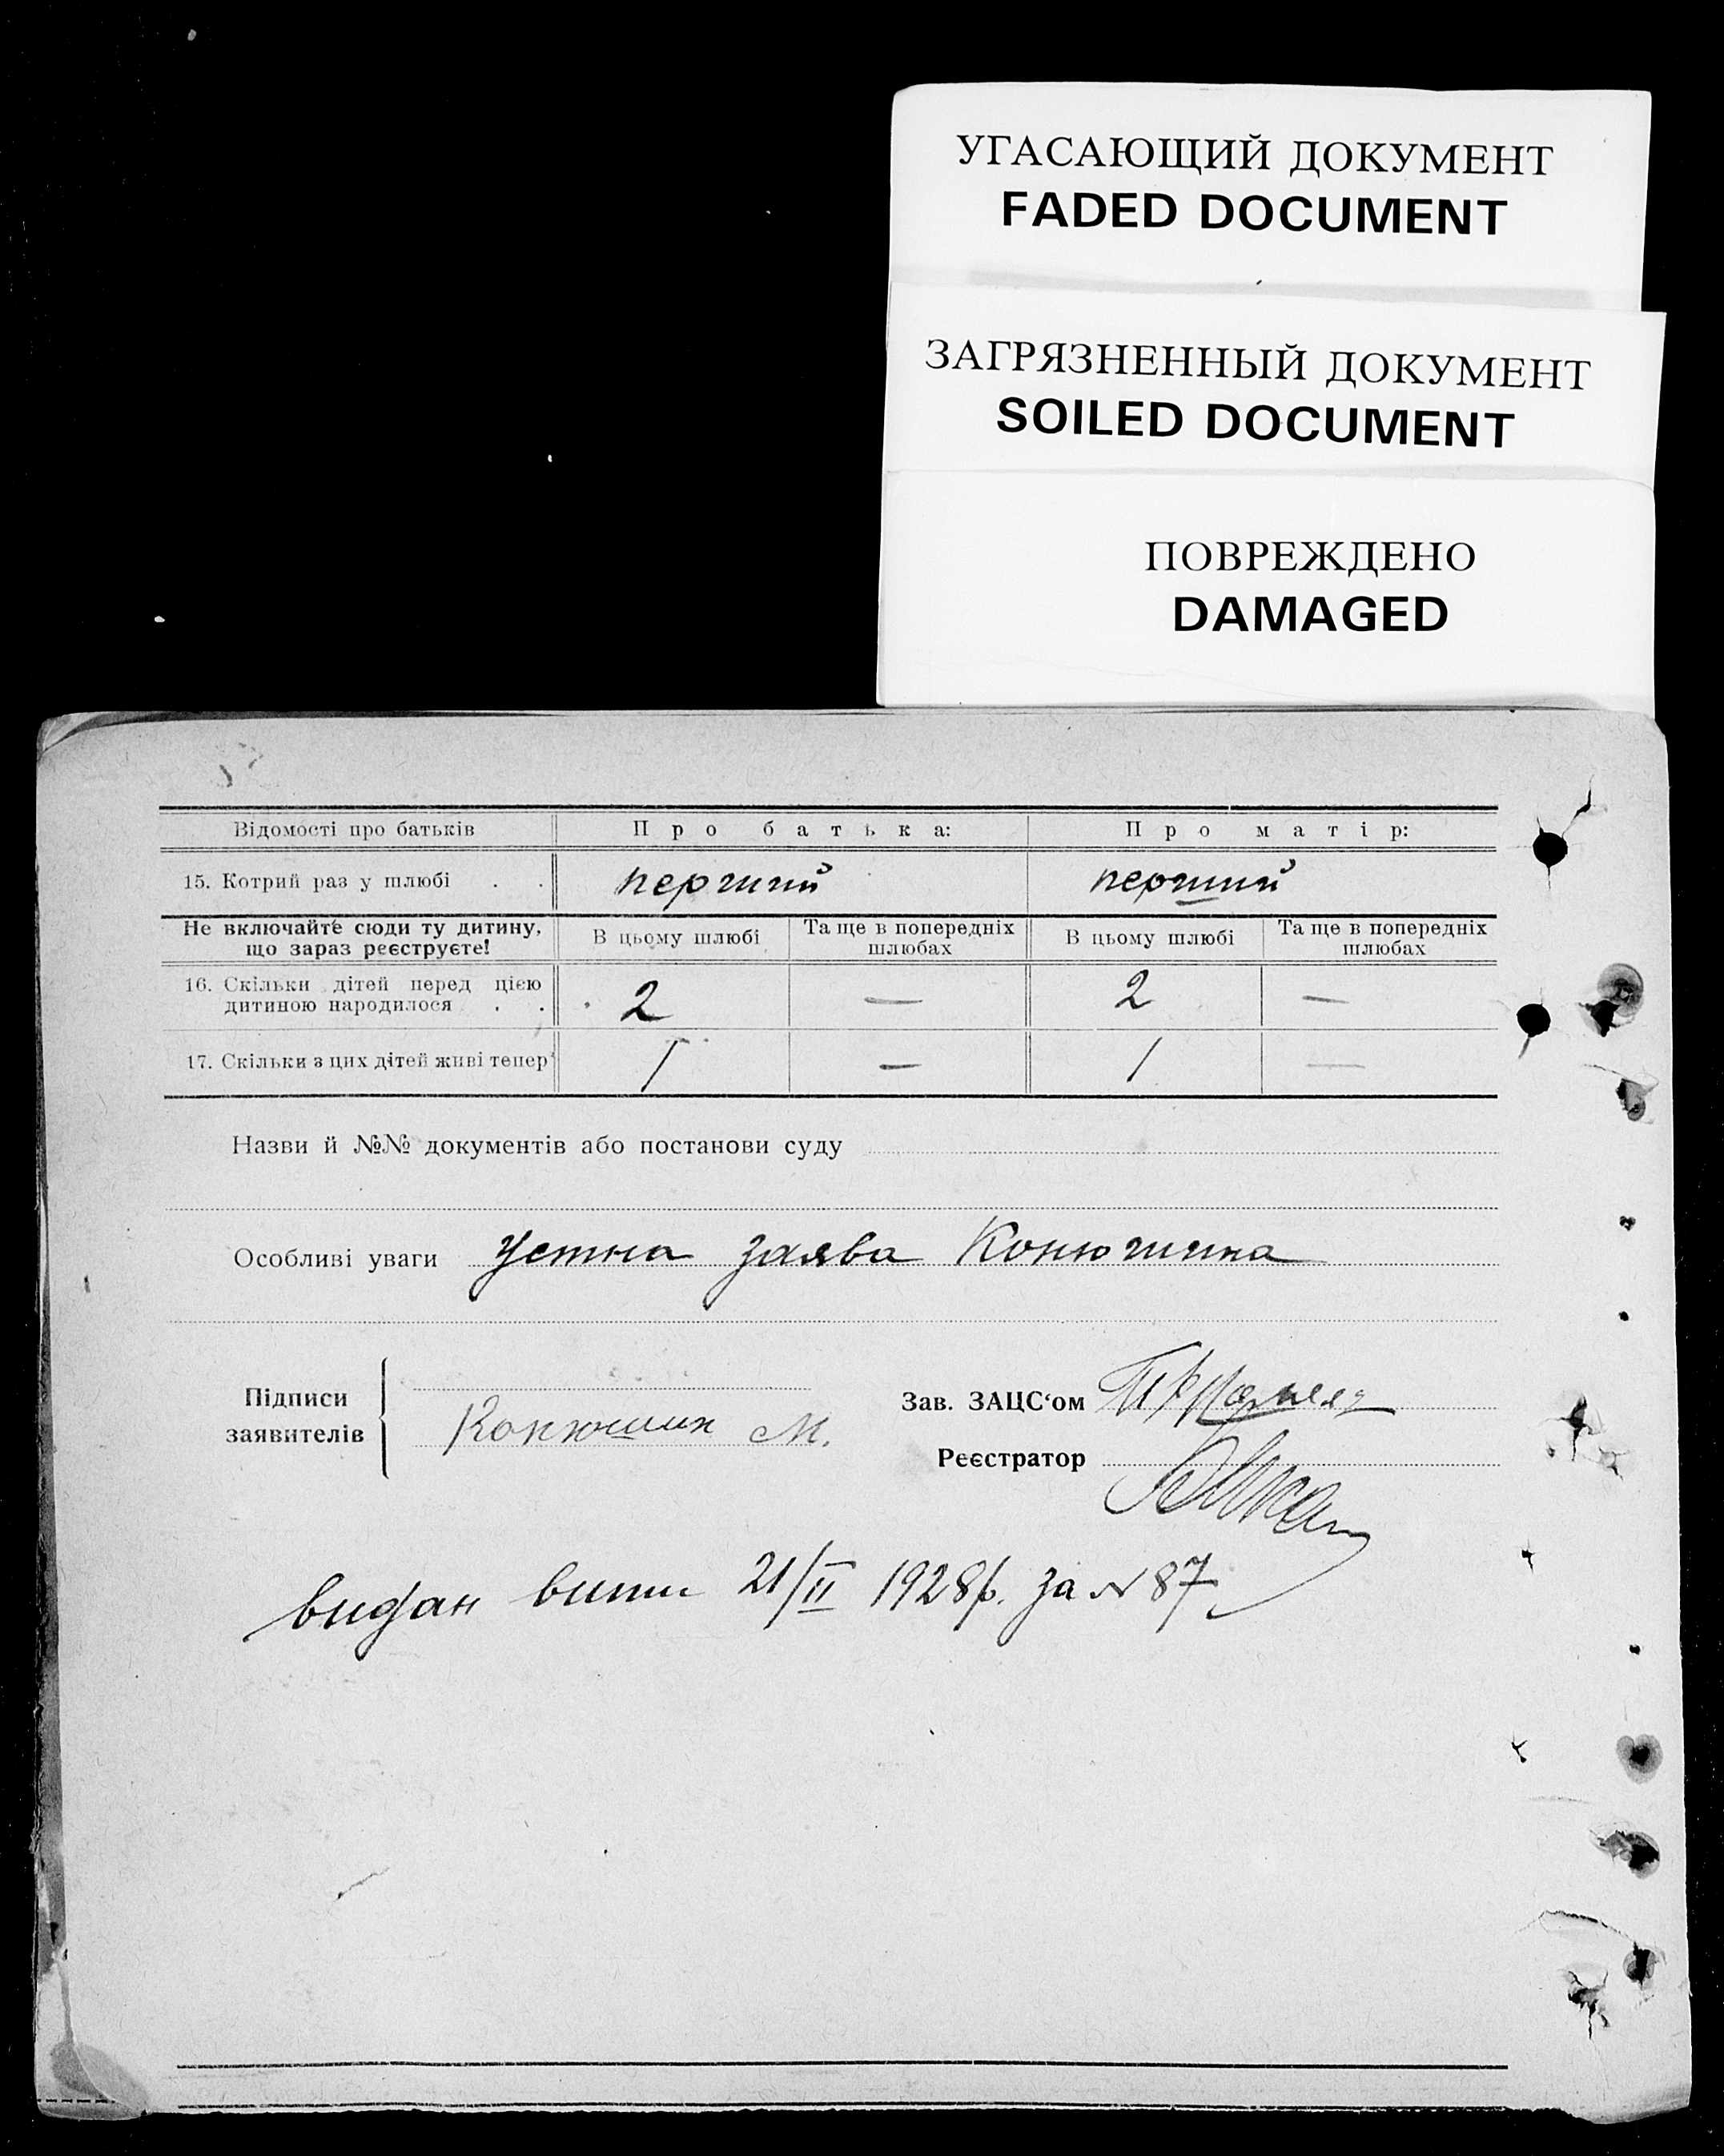 УГАСАЮЩИЙ ДОКУМЕНТ
FADED DOCUMENT
ЗАГРЯЗНЕННЫЙ ДОКУМЕНТ
SOILED DOCUMENT
ПОВРЕЖДЕНО
DAMAGED
Відомості про батьків Про батька: Про матір:
15. Котрий раз у шлюбі . . перший перший
Не включайте сюди ту дитину, що зараз реєструєте! В цьому шлюбі Та ще в попередніх шлюбах В цьому шлюбі Та ще в попередніх шлюбах
16. Скільки дітей перед цією дитиною народилося . . 2 — 2 —
17. Скільки з цих дітей живі тепер 1 — 1 —
Назви й №№ документів або постанови суду
Особливі уваги Устна заява Конюшина
Підписи заявителів Конюшин М.
Зав. ЗАЦС‘ом
Реєстратор
видан випис 21/II 1928р. за № 87